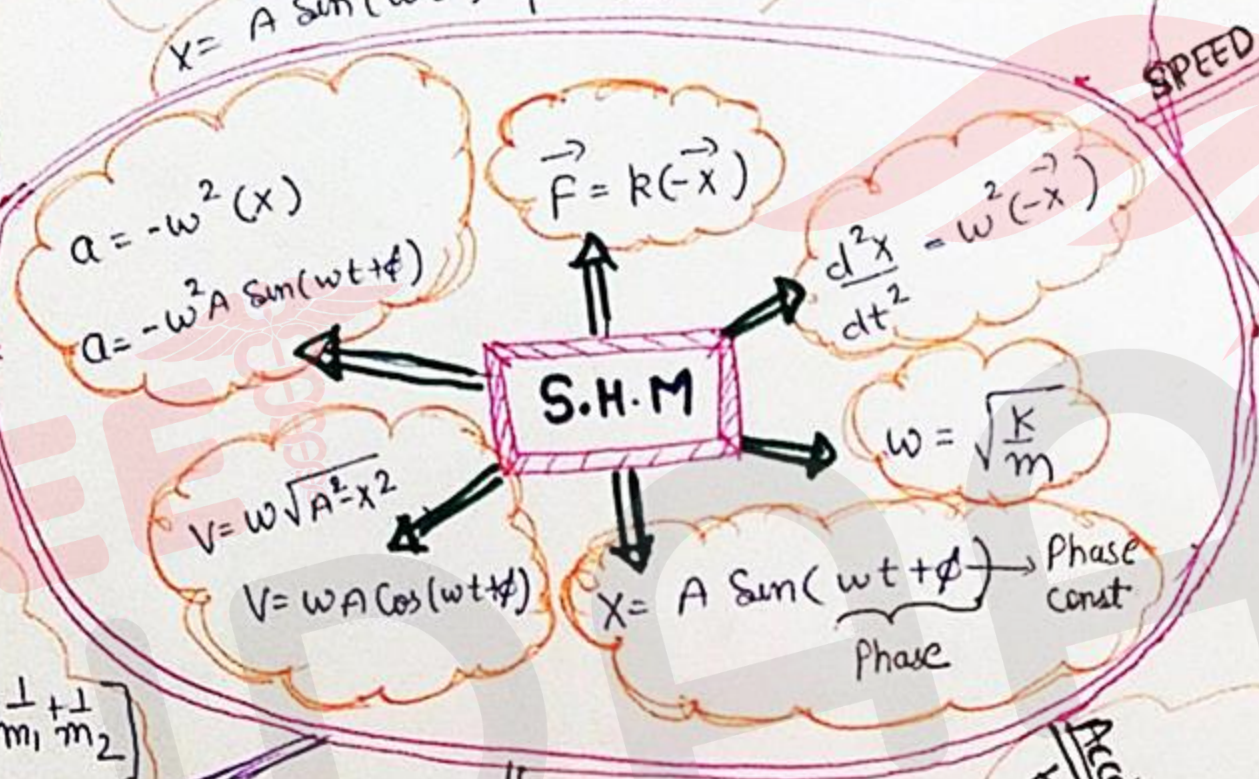 X= A Sin(
SPEED
a = -ω² (x)
a = -ω²A Sin(ωt+ϕ)
F⃗ = k(-x⃗)
d²x/dt² = ω²(-x⃗)
S.H.M
ω = √(K/m)
V= ω√(A²-x²)
V= ωA Cos(ωt+ϕ)
X= A Sin(ωt+ϕ) → Phase
const
Phase
1/m₁ + 1/m₂]